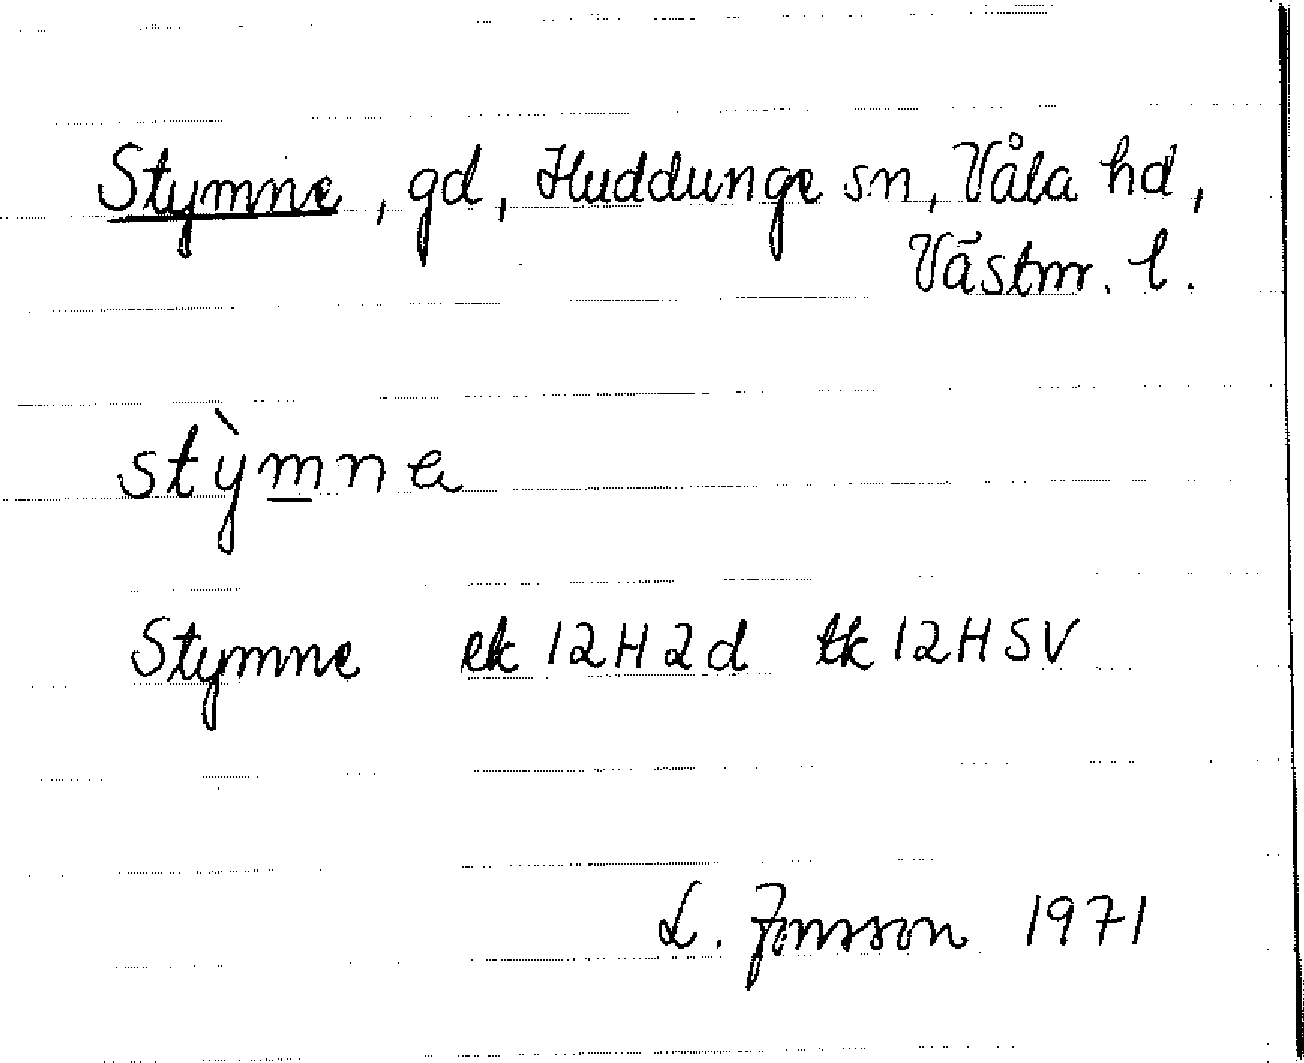 Stymne, gd, Huddunge sn, Våla hd,
Västm. l.
stỳmne
Stymne ek 12H2d tk 12HSV
L. Jonsson 1971